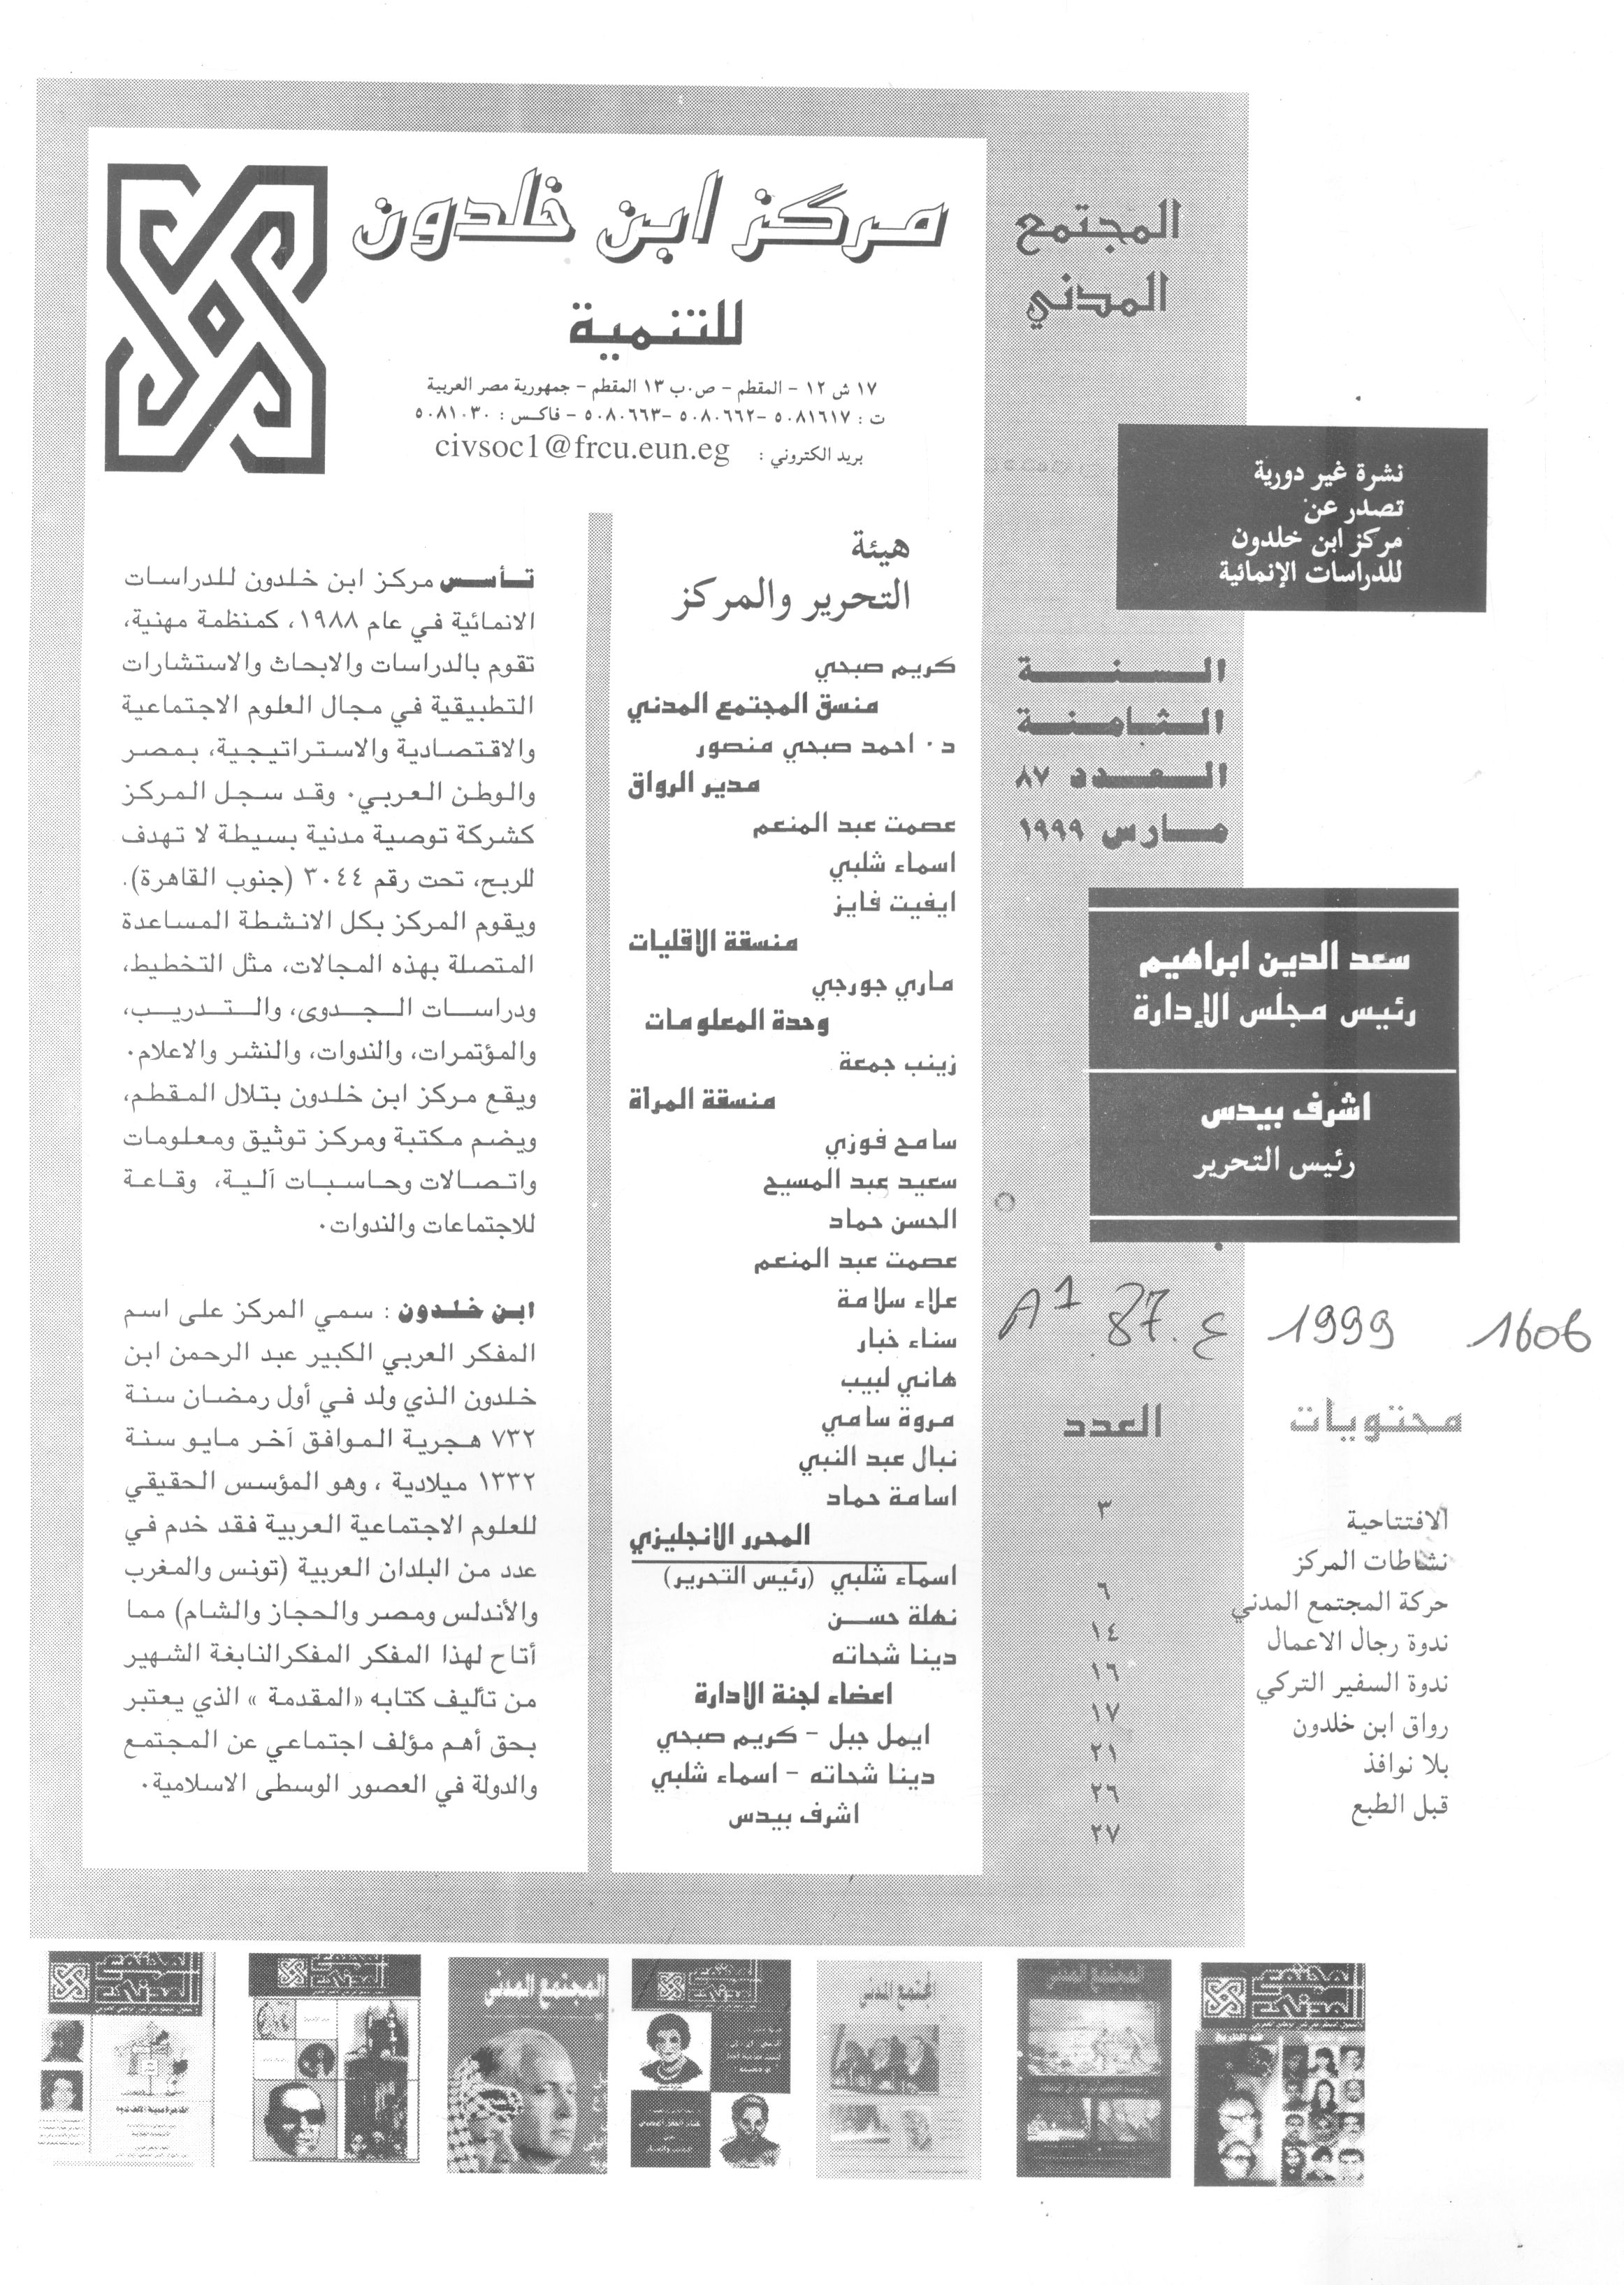 المجتمع
المدني
نشرة غير دورية
تصدر عن
مركز ابن خلدون
للدراسات الإنمائية
السنة
الثامنة
العدد ٨٧
مارس ١٩٩٩
سعد الدين ابراهيم
رئيس مجلس الإدارة
اشرف بيدس
رئيس التحرير
A1 87.ع 1999 1606
محتويات العدد
الافتتاحية ٣
نشاطات المركز ٦
حركة المجتمع المدني ١٤
ندوة رجال الاعمال ١٦
ندوة السفير التركي ١٧
رواق ابن خلدون ٢١
بلا نوافذ ٢٦
قبل الطبع ٢٧
مركز ابن خلدون
للتنمية
١٧ ش ١٢ - المقطم - ص.ب ١٣ المقطم - جمهورية مصر العربية
ت : ٥٠٨١٦١٧ -٥٠٨٠٦٦٢ -٥٠٨٠٦٦٣ - فاكس : ٥٠٨١٠٣٠
بريد الكتروني : civsoc1@frcu.eun.eg
هيئة
التحرير والمركز
كريم صبحي
منسق المجتمع المدني
د. احمد صبحي منصور
مدير الرواق
عصمت عبد المنعم
اسماء شلبي
ايفيت فايز
منسقة الاقليات
ماري جورجي
وحدة المعلومات
زينب جمعة
منسقة المرأة
سامح فوزي
سعيد عبد المسيح
الحسن حماد
عصمت عبد المنعم
علاء سلامة
سناء خبار
هاني لبيب
مروة سامي
نبال عبد النبي
اسامة حماد
المحرر الانجليزي
اسماء شلبي (رئيس التحرير)
نهلة حسن
دينا شحاته
اعضاء لجنة الادارة
ايمل جبل - كريم صبحي
دينا شحاته - اسماء شلبي
اشرف بيدس
تأسس مركز ابن خلدون للدراسات
الانمائية في عام ١٩٨٨، كمنظمة مهنية،
تقوم بالدراسات والابحاث والاستشارات
التطبيقية في مجال العلوم الاجتماعية
والاقتصادية والاستراتيجية، بمصر
والوطن العربي. وقد سجل المركز
كشركة توصية مدنية بسيطة لا تهدف
للربح، تحت رقم ٣٠٤٤ (جنوب القاهرة).
ويقوم المركز بكل الانشطة المساعدة
المتصلة بهذه المجالات، مثل التخطيط،
ودراسات الجدوى، والتدريب،
والمؤتمرات، والندوات، والنشر والاعلام.
ويقع مركز ابن خلدون بتلال المقطم،
ويضم مكتبة ومركز توثيق ومعلومات
واتصالات وحاسبات آلية، وقاعة
للاجتماعات والندوات.
ابن خلدون : سمي المركز على اسم
المفكر العربي الكبير عبد الرحمن ابن
خلدون الذي ولد في أول رمضان سنة
٧٣٢ هجرية الموافق آخر مايو سنة
١٣٣٢ ميلادية ، وهو المؤسس الحقيقي
للعلوم الاجتماعية العربية فقد خدم في
عدد من البلدان العربية (تونس والمغرب
والأندلس ومصر والحجاز والشام) مما
أتاح لهذا المفكر المفكرالنابغة الشهير
من تأليف كتابه «المقدمة » الذي يعتبر
بحق أهم مؤلف اجتماعي عن المجتمع
والدولة في العصور الوسطى الاسلامية.
المجتمع
المدني
المجتمع
المدني
المجتمع المدني
المجتمع
المدني
المجتمع المدني
المجتمع المدني
المجتمع
المدني